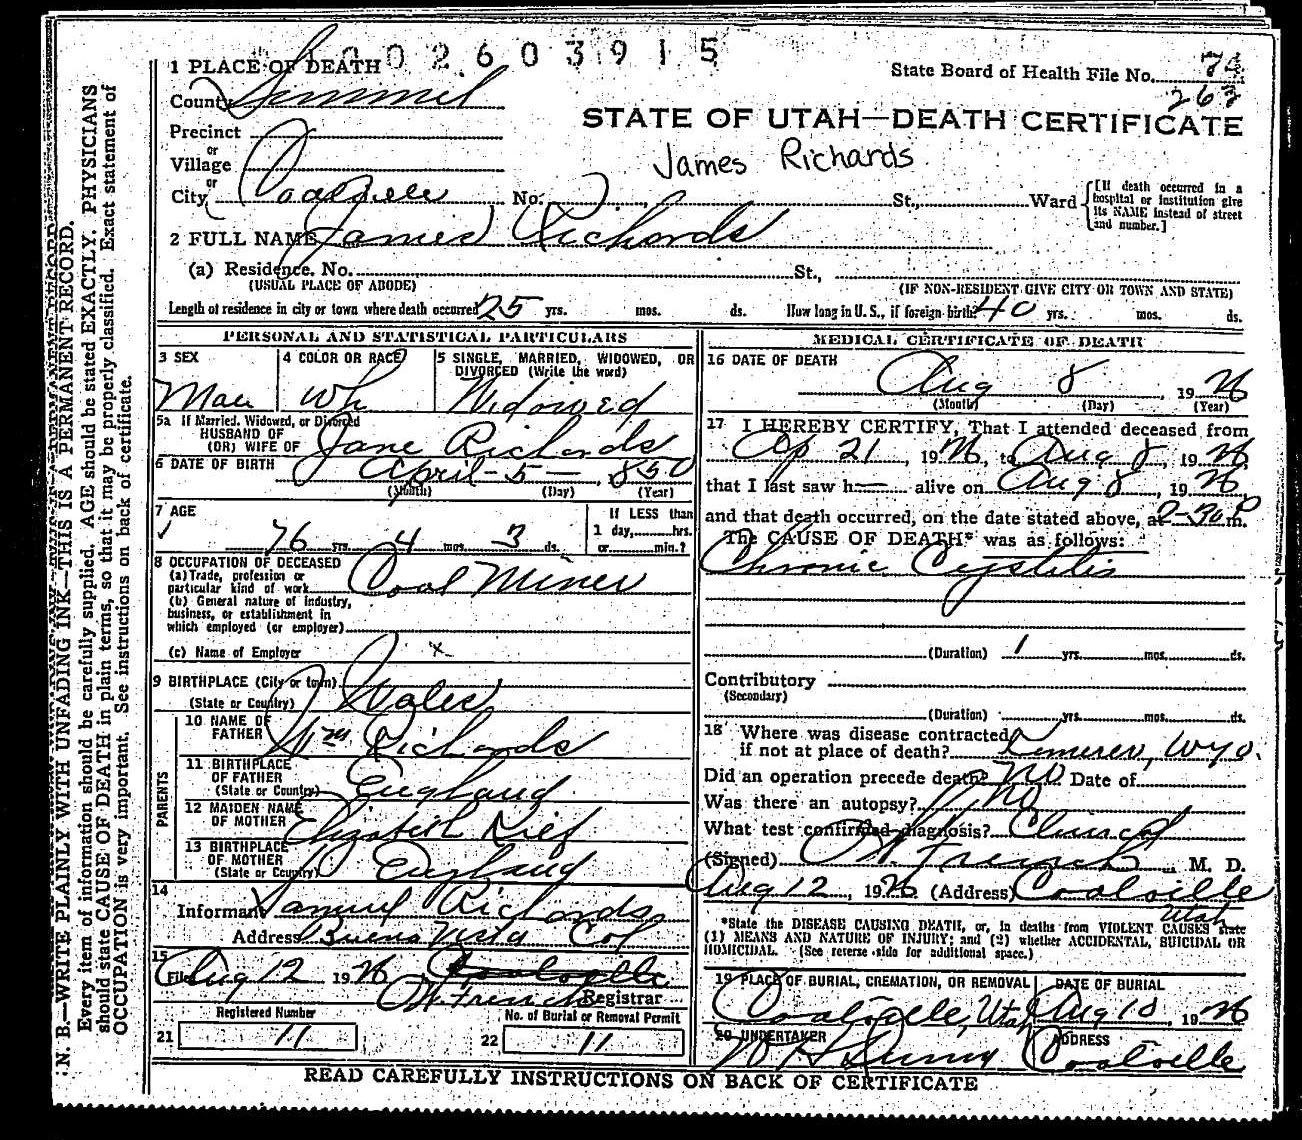 002603915
1 PLACE OF DEATH
State Board of Health File No. 74
County Summit
262
STATE OF UTAH—DEATH CERTIFICATE
Precinct
or
James Richards
Village
or
City Coalville No. St., Ward
[If death occurred in a hospital or institution give its NAME instead of street and number.]
2 FULL NAME James Richards
(a) Residence. No. St.,
(USUAL PLACE OF ABODE) (IF NON-RESIDENT GIVE CITY OR TOWN AND STATE)
Length of residence in city or town where death occurred 25 yrs. mos. ds. How long in U. S., if foreign birth? 40 yrs. mos. ds.
PERSONAL AND STATISTICAL PARTICULARS
3 SEX 4 COLOR OR RACE 5 SINGLE, MARRIED, WIDOWED, OR
DIVORCED (Write the word)
Male Wh Widowed
5a If Married, Widowed, or Divorced
HUSBAND OF
(OR) WIFE OF Jane Richards
6 DATE OF BIRTH April - 5 - 1850
(Month) (Day) (Year)
7 AGE If LESS than
1 day, hrs.
76 yrs. 4 mos. 3 ds. or min.?
8 OCCUPATION OF DECEASED
(a) Trade, profession or
particular kind of work Coal Miner
(b) General nature of industry,
business, or establishment in
which employed (or employer)
(c) Name of Employer x
9 BIRTHPLACE (City or town)
(State or Country) Wales
PARENTS
10 NAME OF
FATHER Wm Richards
11 BIRTHPLACE
OF FATHER
(State or Country) England
12 MAIDEN NAME
OF MOTHER Elizabeth Kief
13 BIRTHPLACE
OF MOTHER
(State or Country) England
14
Informant Samuel Richards
Address Buena Vista Col
15
Filed Aug 12 1926 Coalville
O W French Registrar
Registered Number No. of Burial or Removal Permit
21 11 22 11
MEDICAL CERTIFICATE OF DEATH
16 DATE OF DEATH
Aug 8 , 1926
(Month) (Day) (Year)
17 I HEREBY CERTIFY, That I attended deceased from
Ap 21, 1926, to Aug 8, 1926,
that I last saw h— alive on Aug 8, 1926,
and that death occurred, on the date stated above, at 2-30 P m.
The CAUSE OF DEATH* was as follows:
Chronic Cystitis
(Duration) 1 yrs. mos. ds.
Contributory
(Secondary)
(Duration) yrs. mos. ds.
18 Where was disease contracted
if not at place of death? Kemerer, Wyo.
Did an operation precede death? No Date of
Was there an autopsy? No
What test confirmed diagnosis? Clinical
(Signed) O W French M. D.
Aug 12, 1926 (Address) Coalville
Utah
*State the DISEASE CAUSING DEATH, or, in deaths from VIOLENT CAUSES state
(1) MEANS AND NATURE OF INJURY; and (2) whether ACCIDENTAL, SUICIDAL OR
HOMICIDAL. (See reverse side for additional space.)
19 PLACE OF BURIAL, CREMATION, OR REMOVAL DATE OF BURIAL
Coalville, Utah Aug 10, 1926
20 UNDERTAKER ADDRESS
Coalville
READ CAREFULLY INSTRUCTIONS ON BACK OF CERTIFICATE
N. B.—WRITE PLAINLY WITH UNFADING INK—THIS IS A PERMANENT RECORD.
Every item of information should be carefully supplied. AGE should be stated EXACTLY. PHYSICIANS
should state CAUSE OF DEATH in plain terms, so that it may be properly classified. Exact statement of
OCCUPATION is very important. See instructions on back of certificate.